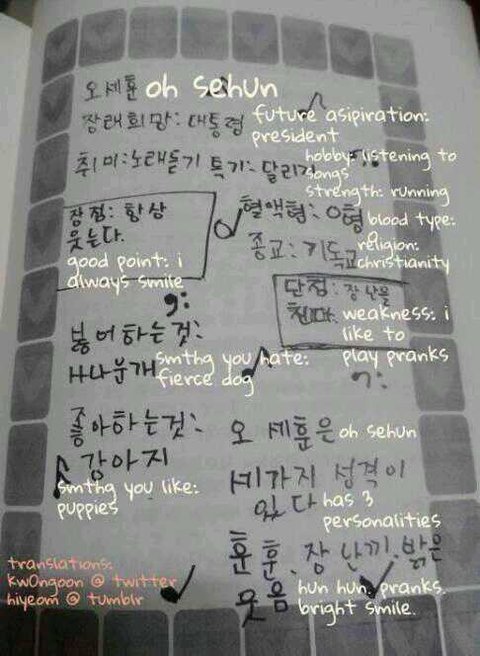 오세훈 oh sehun
장래희망: 대통령 future asipiration:
president
취미:노래듣기 특기: 달리기
hobby: listening to
songs
strength: running
장점: 항상
웃는다.
good point: i
always smile
혈액형: O형 blood type:
o
종교: 기독교 religion:
christianity
단점: 장난을
친다. weakness: i
like to
play pranks
싫어하는것:
사나운개 smthg you hate:
fierce dog
좋아하는것:
강아지
smthg you like:
puppies
오세훈은 oh sehun
세가지 성격이
있다 has 3
personalities
훈훈, 장난끼, 밝은
웃음 hun hun, pranks,
bright smile.
translations:
kw0ngoon @ twitter
hiyeom @ tumblr